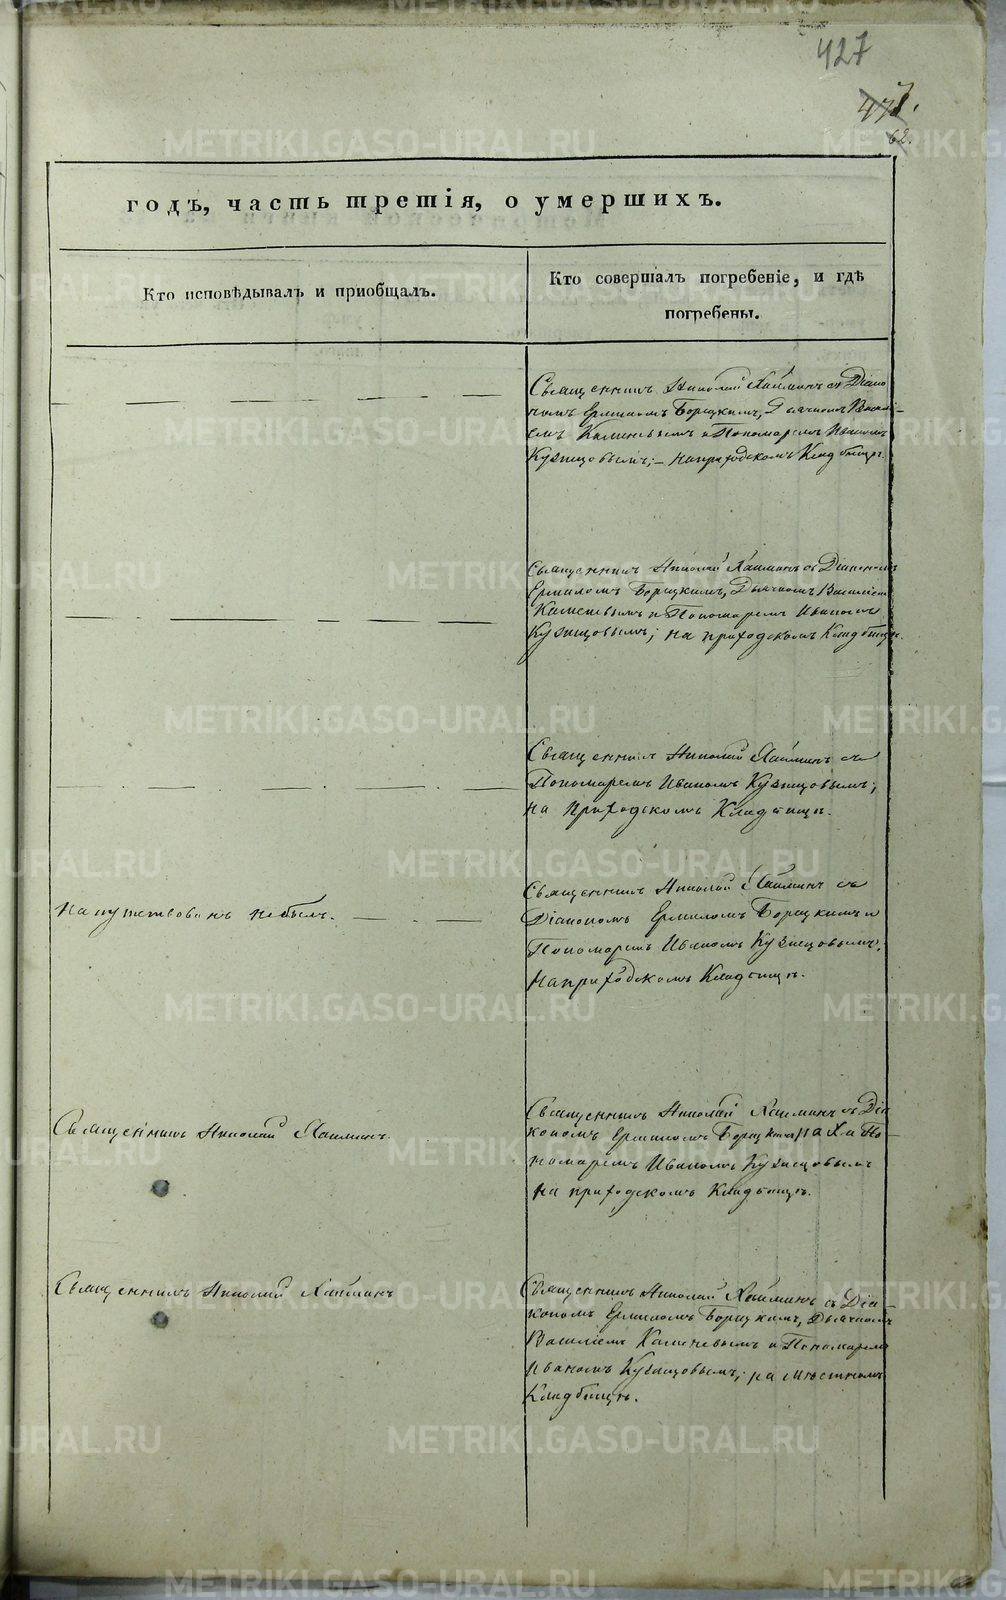 427
62.
годъ, часть третія, о умершихъ.
Кто исповѣдывалъ и приобщалъ.
Кто совершалъ погребеніе, и гдѣ
погребены.
Священникъ Николай съ Діако
номъ Ермиломъ Борецкимъ, Дьячкомъ Васи
емъ и Пономаремъ Иваномъ
Кузнецовымъ; – на приходскомъ Кладбищѣ.
Священникъ Николай съ Діакономъ
Ермиломъ Борецкимъ, Дьячкомъ Василіем
и Пономаремъ Иваномъ
Кузнецовымъ; на приходскомъ Кладбищѣ.
Священникъ Николай съ
Пономаремъ Иваномъ Кузнецовымъ;
на приходскомъ Кладбищѣ.
Напутствованъ небылъ.
Священникъ Николай съ
Діакономъ Ермиломъ Борецкимъ и
Пономаремъ Иваномъ Кузнецовымъ;
на приходскомъ Кладбищѣ.
Священникъ Николай
Священникъ Николай съ Діа
кономъ Ермиломъ и По
номаремъ Иваномъ Кузнецовымъ
на приходскомъ Кладбищѣ.
Священникъ Николай
Священникъ Николай съ Діа
кономъ Ермиломъ Борецкимъ, Дьячкомъ
Василіемъ и Пономаремъ
Иваномъ Кузнецовымъ; на мѣстномъ
Кладбищѣ.
METRIKI.GASO-URAL.RU